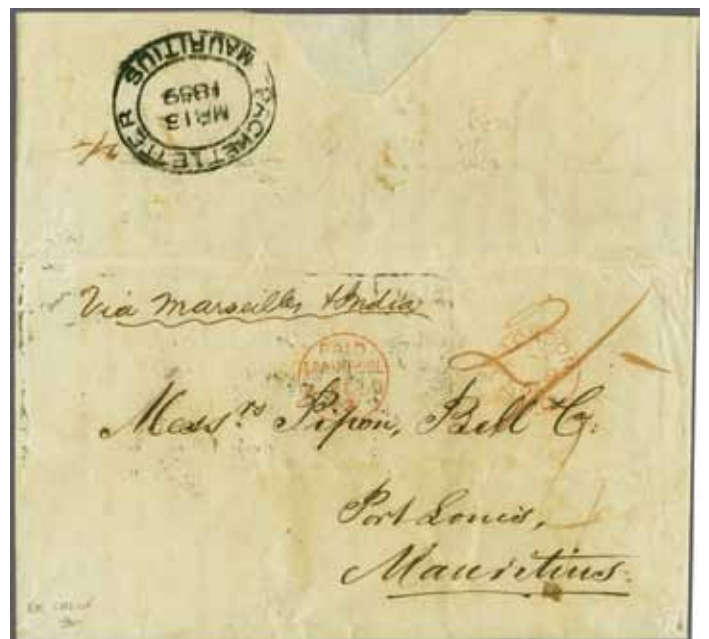 PACKET LETTER
MAURITIUS
MR 13
1859
Via Marseilles & India
PAID
2/-
Messrs. Pipon, Bell & Co.
Port Louis,
Mauritius.